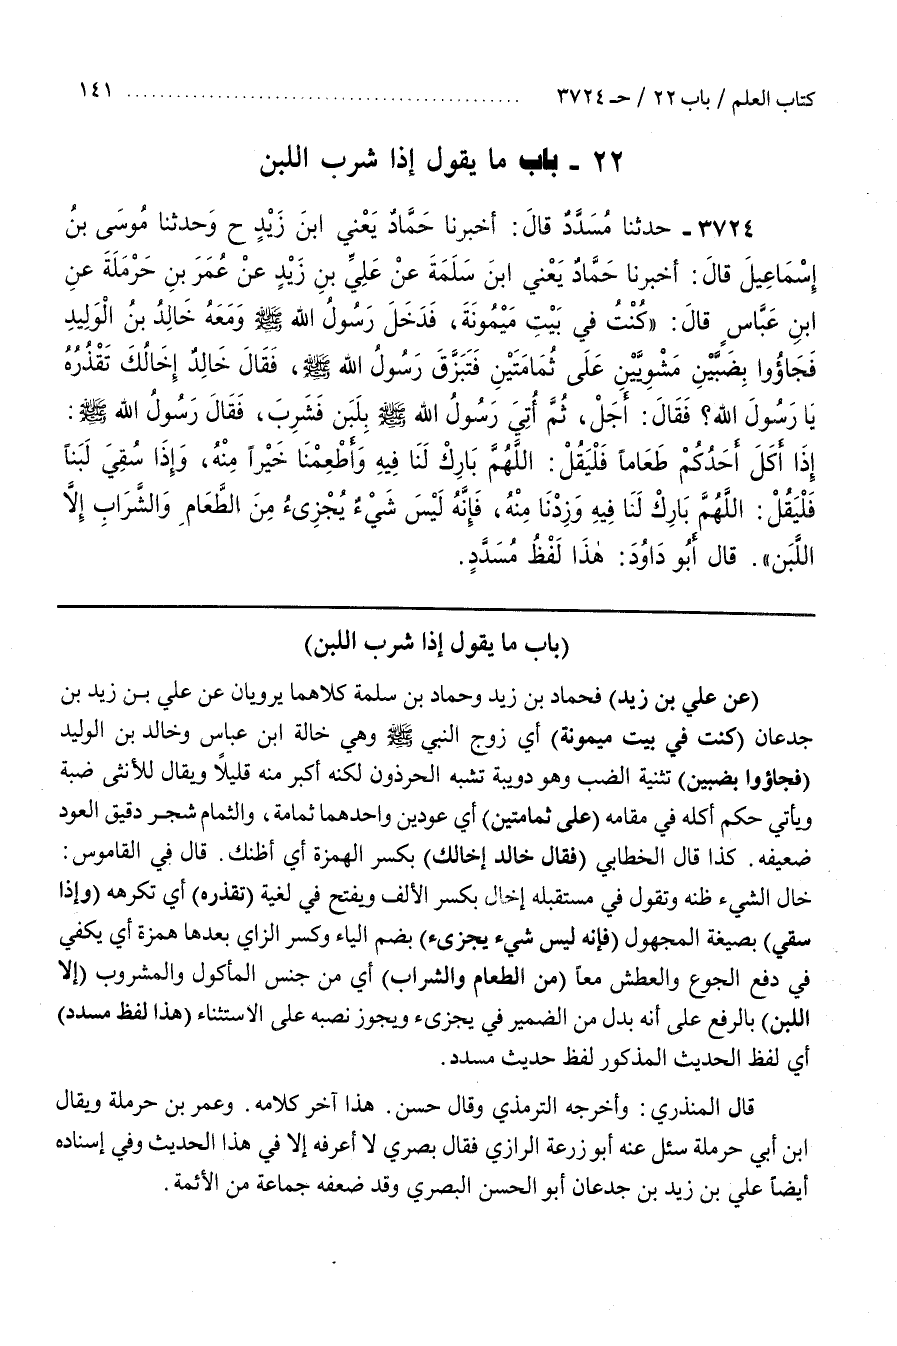 كتاب العلم / باب ٢٢ / حـ ٣٧٢٤ ................................................ ١٤١
٢٢ ـ باب ما يقول إذا شرب اللبن
٣٧٢٤ ـ حدثنا مُسَدَّدٌ قالَ: أخبرنا حَمَّادٌ يَعْني ابنَ زَيْدٍ ح وَحدثنا مُوسَى بنُ
إِسْمَاعِيلَ قالَ: أخبرنا حَمَّادٌ يَعْني ابنَ سَلَمَةَ عنْ عَلِيِّ بنِ زَيْدٍ عنْ عُمَرَ بنِ حَرْمَلَةَ عنِ
ابنِ عَبَّاسٍ قالَ: «كُنْتُ في بَيْتِ مَيْمُونَةَ، فَدَخَلَ رَسُولُ الله ﷺ وَمَعَهُ خَالِدُ بنُ الْوَلِيدِ
فَجَاؤُوا بِضَبَّيْنِ مَشْوِيَّيْنِ عَلَى ثُمَامَتَيْنِ فَتَبَزَّقَ رَسُولُ الله ﷺ، فَقَالَ خَالِدٌ إِخَالُكَ تَقْذُرُهُ
يَا رَسُولَ الله؟ فَقَالَ: أَجَلْ، ثُمَّ أُتِيَ رَسُولُ الله ﷺ بِلَبَنٍ فَشَرِبَ، فَقَالَ رَسُولُ الله ﷺ:
إِذَا أَكَلَ أَحَدُكُمْ طَعَاماً فَلْيَقُلْ: اللَّهُمَّ بَارِكْ لَنَا فِيهِ وَأَطْعِمْنَا خَيْراً مِنْهُ، وَإِذَا سُقِيَ لَبَناً
فَلْيَقُلْ: اللَّهُمَّ بَارِكْ لَنَا فِيهِ وَزِدْنَا مِنْهُ، فَإِنَّهُ لَيْسَ شَيْءٌ يُجْزِىءُ مِنَ الطَّعَامِ وَالشَّرَابِ إِلَّا
اللَّبَن». قال أَبُو دَاوُدَ: هٰذَا لَفْظُ مُسَدَّدٍ.
(باب ما يقول إذا شرب اللبن)
(عن علي بن زيد) فحماد بن زيد وحماد بن سلمة كلاهما يرويان عن علي بـن زيد بن
جدعان (كنت في بيت ميمونة) أي زوج النبي ﷺ وهي خالة ابن عباس وخالد بن الوليد
(فجاؤوا بضبين) تثنية الضب وهو دويبة تشبه الحرذون لكنه أكبر منه قليلاً ويقال للأنثى ضبة
ويأتي حكم أكله في مقامه (على ثمامتين) أي عودين واحدهما ثمامة، والثمام شجـر دقيق العود
ضعيفه. كذا قال الخطابي (فقال خالد إخالك) بكسر الهمزة أي أظنك. قال في القاموس:
خال الشيء ظنه وتقول في مستقبله إخال بكسر الألف ويفتح في لغية (تقذره) أي تكرهه (وإذا
سقي) بصيغة المجهول (فإنه ليس شيء يجزىء) بضم الياء وكسر الزاي بعدها همزة أي يكفي
في دفع الجوع والعطش معاً (من الطعام والشراب) أي من جنس المأكول والمشروب (إلا
اللبن) بالرفع على أنه بدل من الضمير في يجزىء ويجوز نصبه على الاستثناء (هذا لفظ مسدد)
أي لفظ الحديث المذكور لفظ حديث مسدد.
قال المنذري: وأخرجه الترمذي وقال حسن. هذا آخر كلامه. وعمر بن حرملة ويقال
ابن أبي حرملة سئل عنه أبو زرعة الرازي فقال بصري لا أعرفه إلا في هذا الحديث وفي إسناده
أيضاً علي بن زيد بن جدعان أبو الحسن البصري وقد ضعفه جماعة من الأئمة.